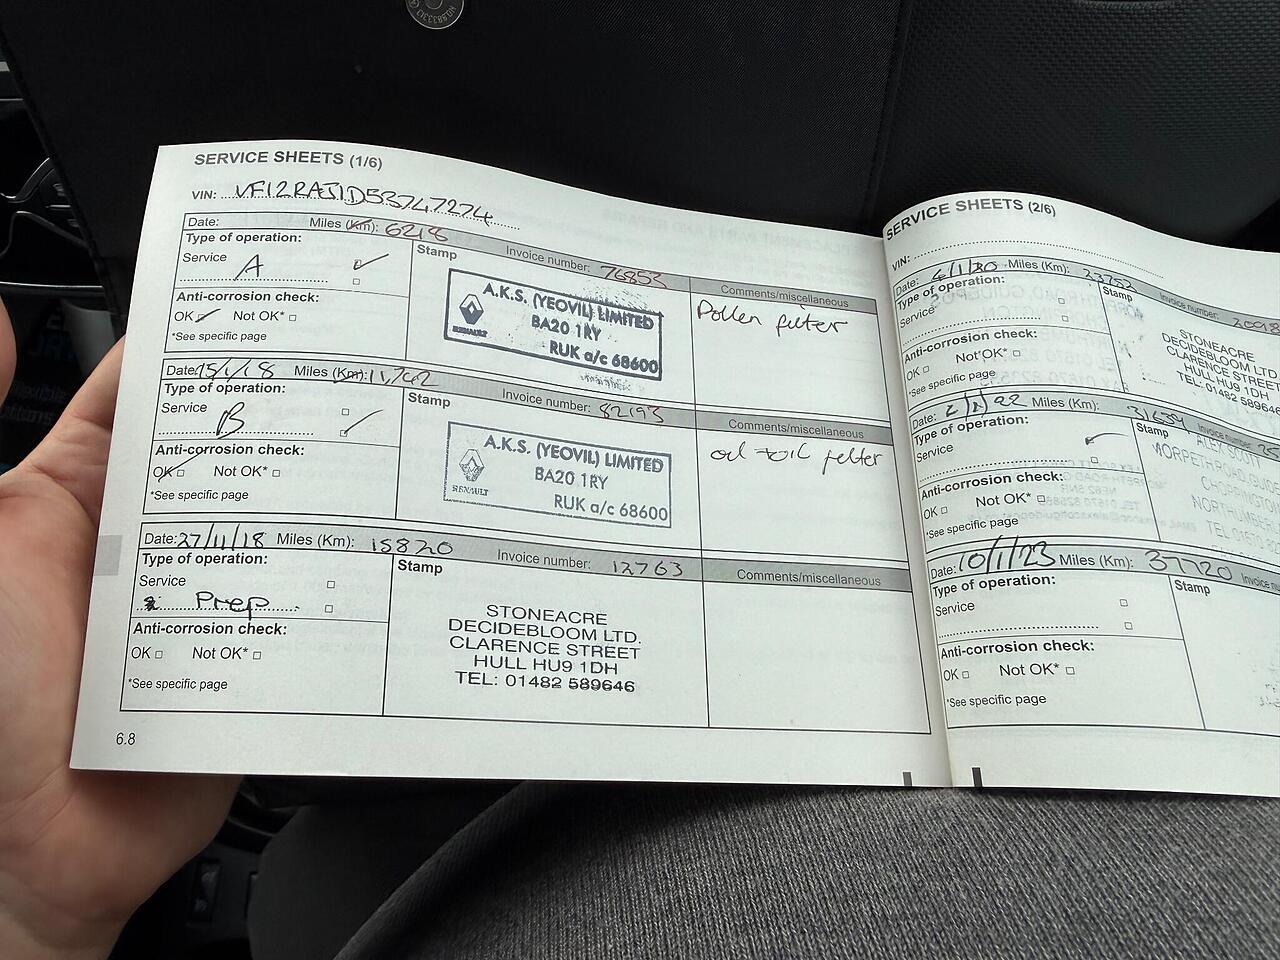 SERVICE SHEETS (1/6)
VIN: VF12RAJ1D53747274
Date: Miles (Km): 6218
Type of operation:
Stamp
Invoice number: 76853
Service A
Comments/miscellaneous
Pollen filter
Anti-corrosion check:
OK Not OK*
*See specific page
A.K.S. (YEOVIL) LIMITED
BA20 1RY
RENAULT
RUK a/c 68600
Date: 15/1/18 Miles (Km): 11,742
Type of operation:
Stamp
Invoice number: 82193
Service
B
Comments/miscellaneous
oil + oil filter
Anti-corrosion check:
OK Not OK*
*See specific page
A.K.S. (YEOVIL) LIMITED
BA20 1RY
RENAULT
RUK a/c 68600
Date: 27/11/18 Miles (Km): 15820
Type of operation:
Stamp
Invoice number: 12763
Comments/miscellaneous
Service
Prep
Anti-corrosion check:
OK Not OK*
*See specific page
STONEACRE
DECIDEBLOOM LTD.
CLARENCE STREET
HULL HU9 1DH
TEL: 01482 589646
6.8
SERVICE SHEETS (2/6)
VIN:
Date: 6/1/20 Miles (Km):
Type of operation:
Stamp
Invoice number:
Service
Anti-corrosion check:
OK Not OK*
*See specific page
STONEACRE
DECIDEBLOOM LTD
CLARENCE STREET
HULL HU9 1DH
TEL: 01482 589646
Date: Miles (Km): 31639
Type of operation:
Stamp
Invoice number:
Service
Anti-corrosion check:
OK Not OK*
*See specific page
ALEX SCOTT
MORPETH ROAD, GUIDE
CHOPPINGTON
NORTHUMBER
TEL 01670 82
Date: 10/1/23 Miles (Km): 37720
Type of operation:
Stamp
Service
Anti-corrosion check:
OK Not OK*
*See specific page